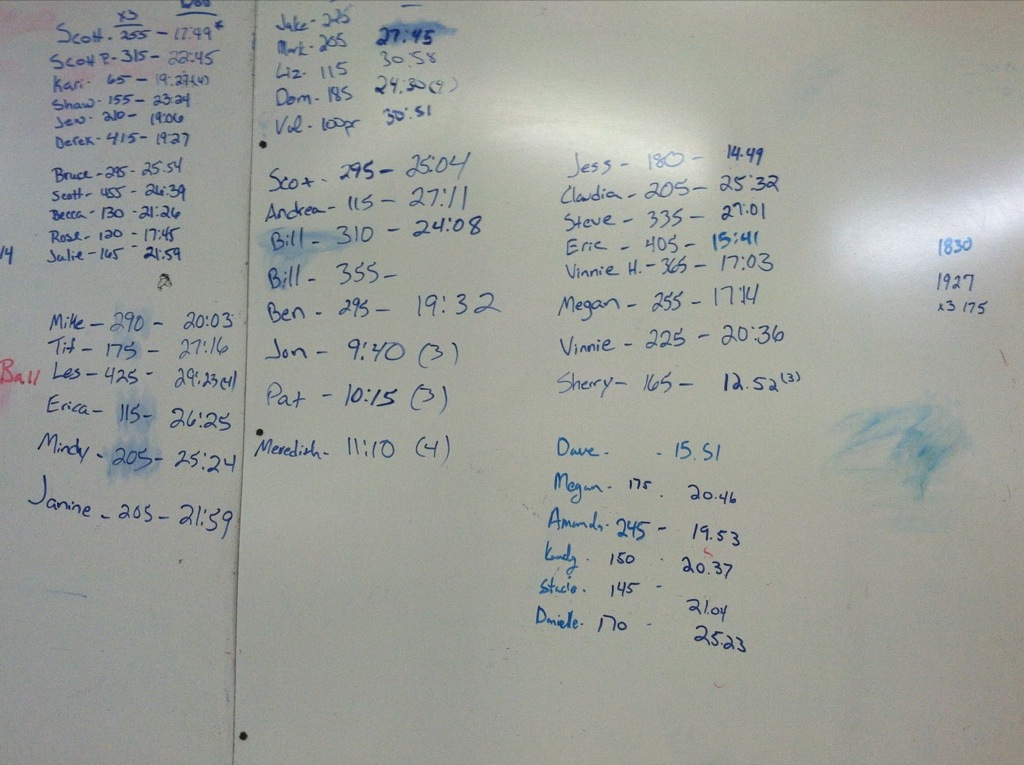 x3 WOD
Scott - 255 - 17:49*
Scott P - 315 - 22:45
Kari - 65 - 19:27(4)
Shaw - 155 - 23:24
Jen - 210 - 19:06
Derek - 415 - 19:27
Bruce - 295 - 25:54
Scott - 455 - 26:39
Becca - 130 - 21:26
Rose - 120 - 17:45
Julie - 165 - 21:59
Mike - 290 - 20:03
Tif - 175 - 27:16
Ball
Les - 425 - 29:23(4)
Erica - 115 - 26:25
Mindy - 205 - 25:24
Janine - 205 - 21:59
Jake - 225
Mark - 205 27:45
Liz - 115 30:58
Dom - 185 24:30(4)
Val - 100pr 30:51
Scot - 295 - 25:04
Andrea - 115 - 27:11
Bill - 310 - 24:08
Bill - 355 -
Ben - 295 - 19:32
Jon - 9:40 (3)
Pat - 10:15 (3)
Meredith - 11:10 (4)
Jess - 180 - 14.49
Claudia - 205 - 25:32
Steve - 335 - 27:01
Eric - 405 - 15:41
Vinnie H. - 365 - 17:03
Megan - 255 - 17:14
Vinnie - 225 - 20:36
Sherry - 165 - 12.52(3)
Dave - - 15.51
Megan - 175 - 20.46
Amanda - 245 - 19.53
Kandy - 150 - 20.37
Stacie - 145 - 21.04
Danielle - 170 - 25.23
1830
1927
x3 175